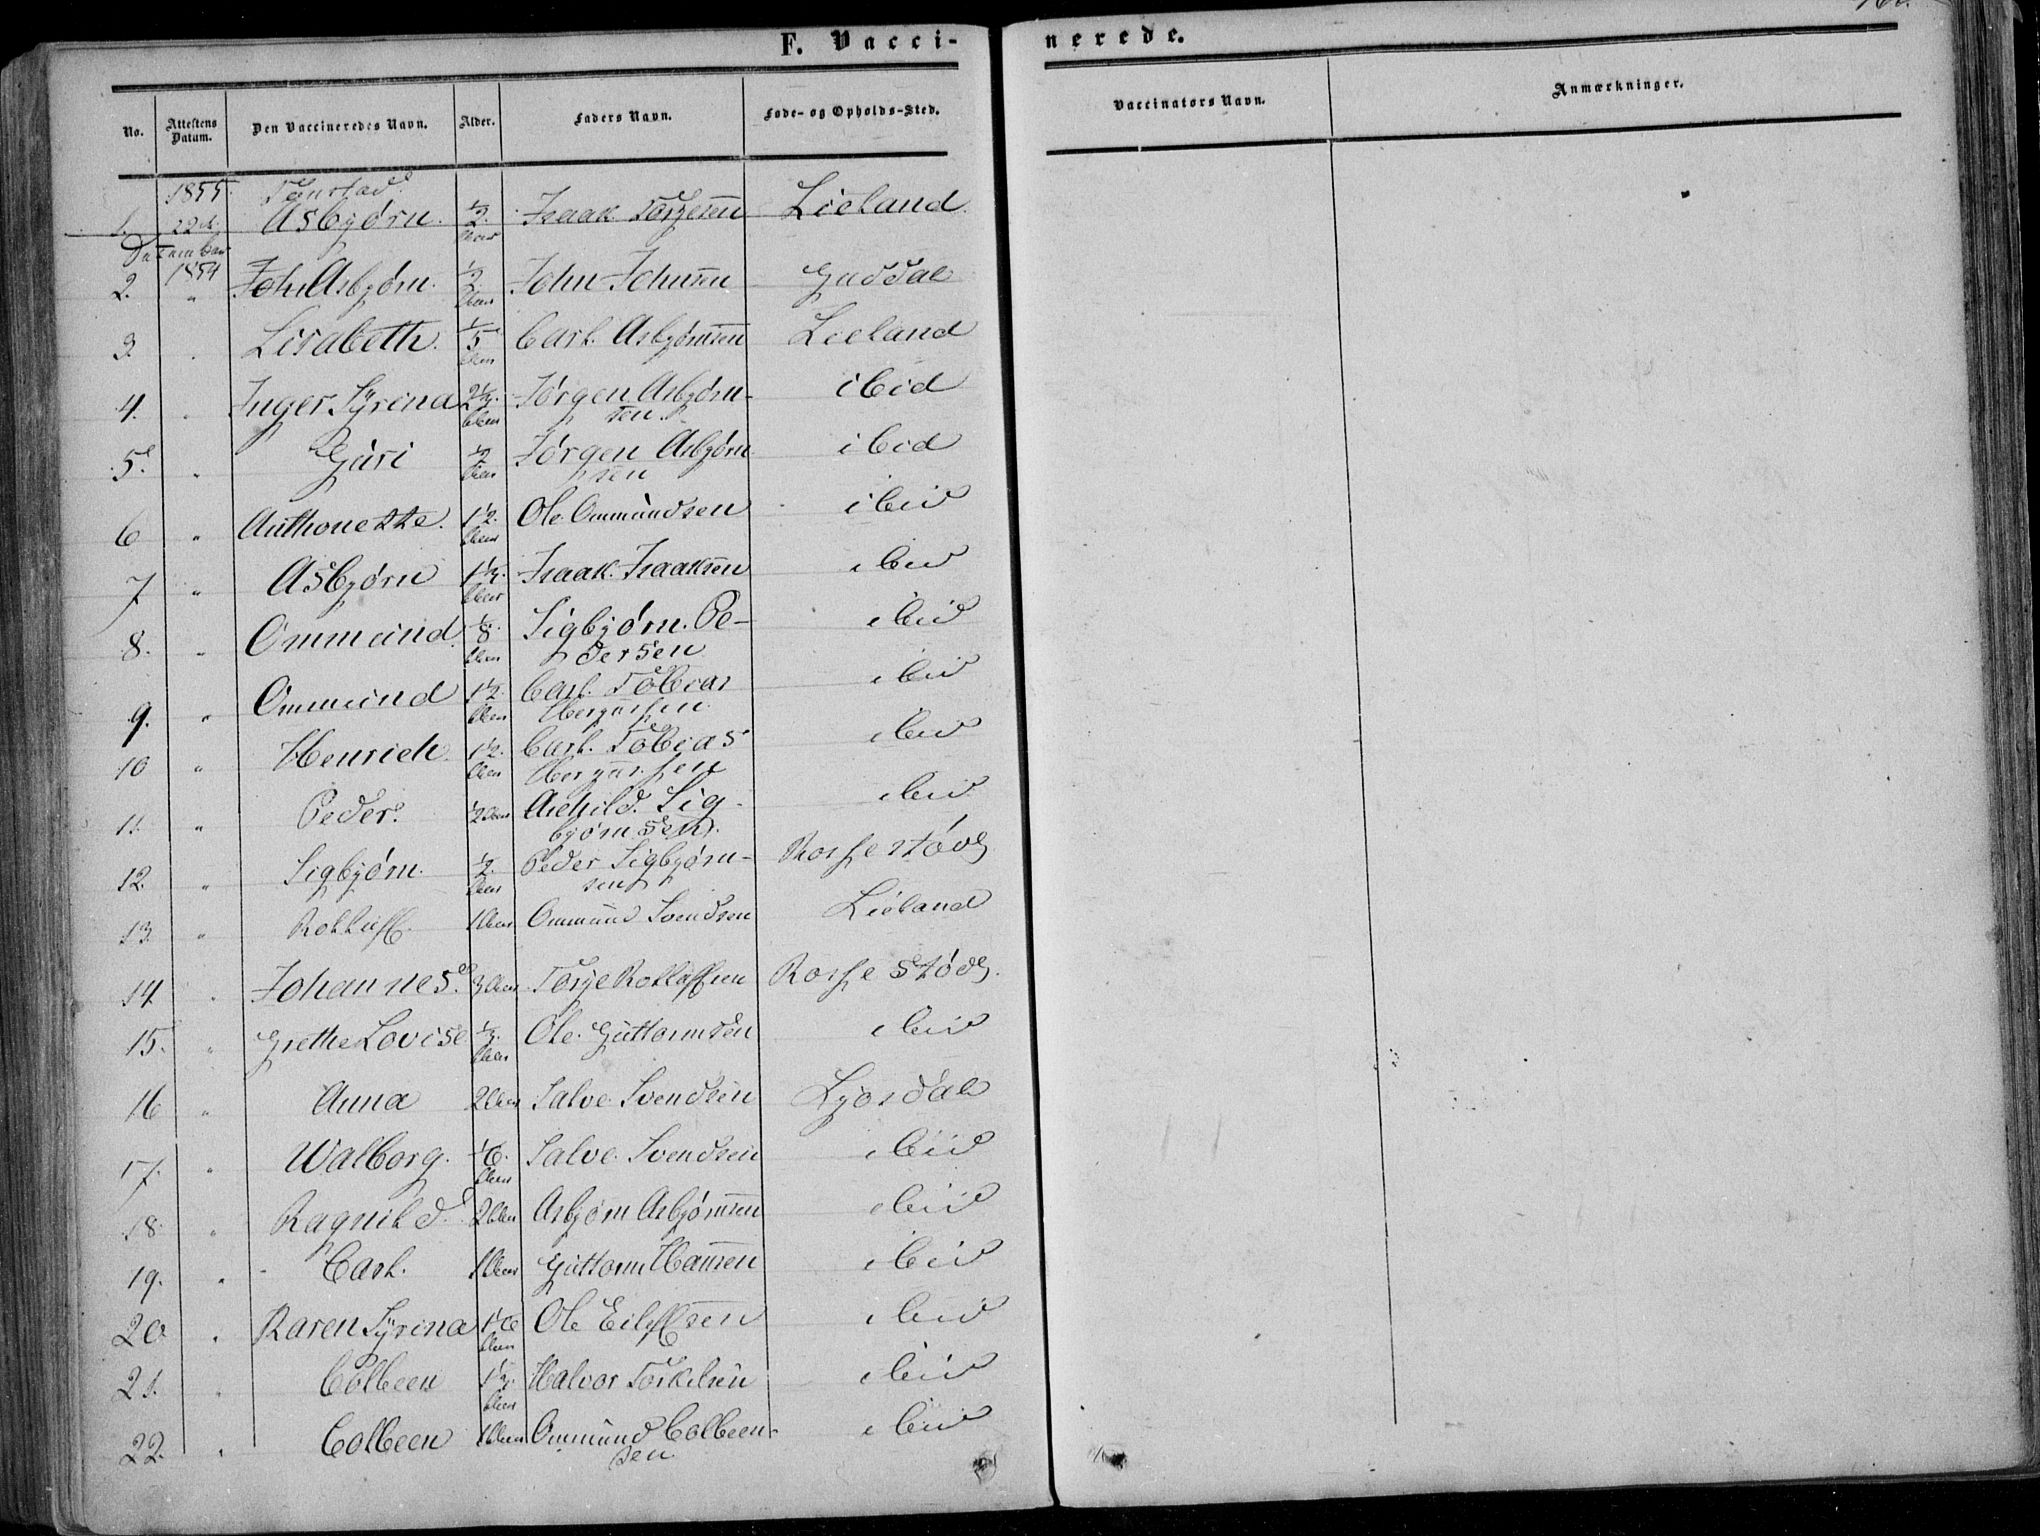 F. Vacci-
nerede.
No. Attestens Datum. Den Vaccineredes Navn. Alder. Faders Navn. Føde- og Opholds-Sted. Vaccinators Navn. Anmærkninger.
1855. Tonstad
1. 22d. Asbjørn. 1/2 Aar Isaak Torgersen Lieland.
1854
2. " John Asbjørn. 1/2. Aar John Johnsen Guddal
3. Lisabeth. 1/5 Aar Carl. Asbjørnsen Lieland
4. Inger Syrina 2 1/2. Aar Jørgen Asbjørn-
sen ibid
5. " Guri 1/2 Aar Jørgen Asbjørn
sen ibid
6 " Anthonette. 1 1/2. Aar Ole Ommundsen ibid
7 " Asbjørn 1 1/2. Aar Isaak. Isaaksen ibid
8. " Ommund. 1/8. Aar Sigbjørn. Pe-
dersen ibid
9. " Ommund 1 1/2. Aar Carl. Tobias ibid
10 " Henrich. 1 1/2. Aar Carl. Tobias ibid
11. " Peder. 1/2 Aar Achild. Sig-
bjørnsen. ibid
12. " Sigbjørn. 1/2. Aar Peder Sigbjørn-
sen Rossestødt
13. " Rolleff. 1 Aar Ommund Svendsen Lieland
14. " Johannes. 3 Aar Torje Rolleffsen Rossestødt.
15. " Grethe Lovise 1/3. Aar Ole. Guttormsen ibid
16 " Anna 2 Aar Salve Svendsen Ljosdal
17. " Walborg. 1/6. Aar Salve. Svendsen ibid
18. " Ragnild. 2 Aar Asbjørn Asbjørnsen ibid
19. " Carl. 1 Aar Guttorm Hansen ibid
20 " Karen Syrina 1 1/6 Aar Ole Eileffsen ibid
21. " Colbeen 1 1/2. Aar Halvor Torkelsen ibid
22. " Colbeen 1 Aar Ommund Colbeen-
sen ibid